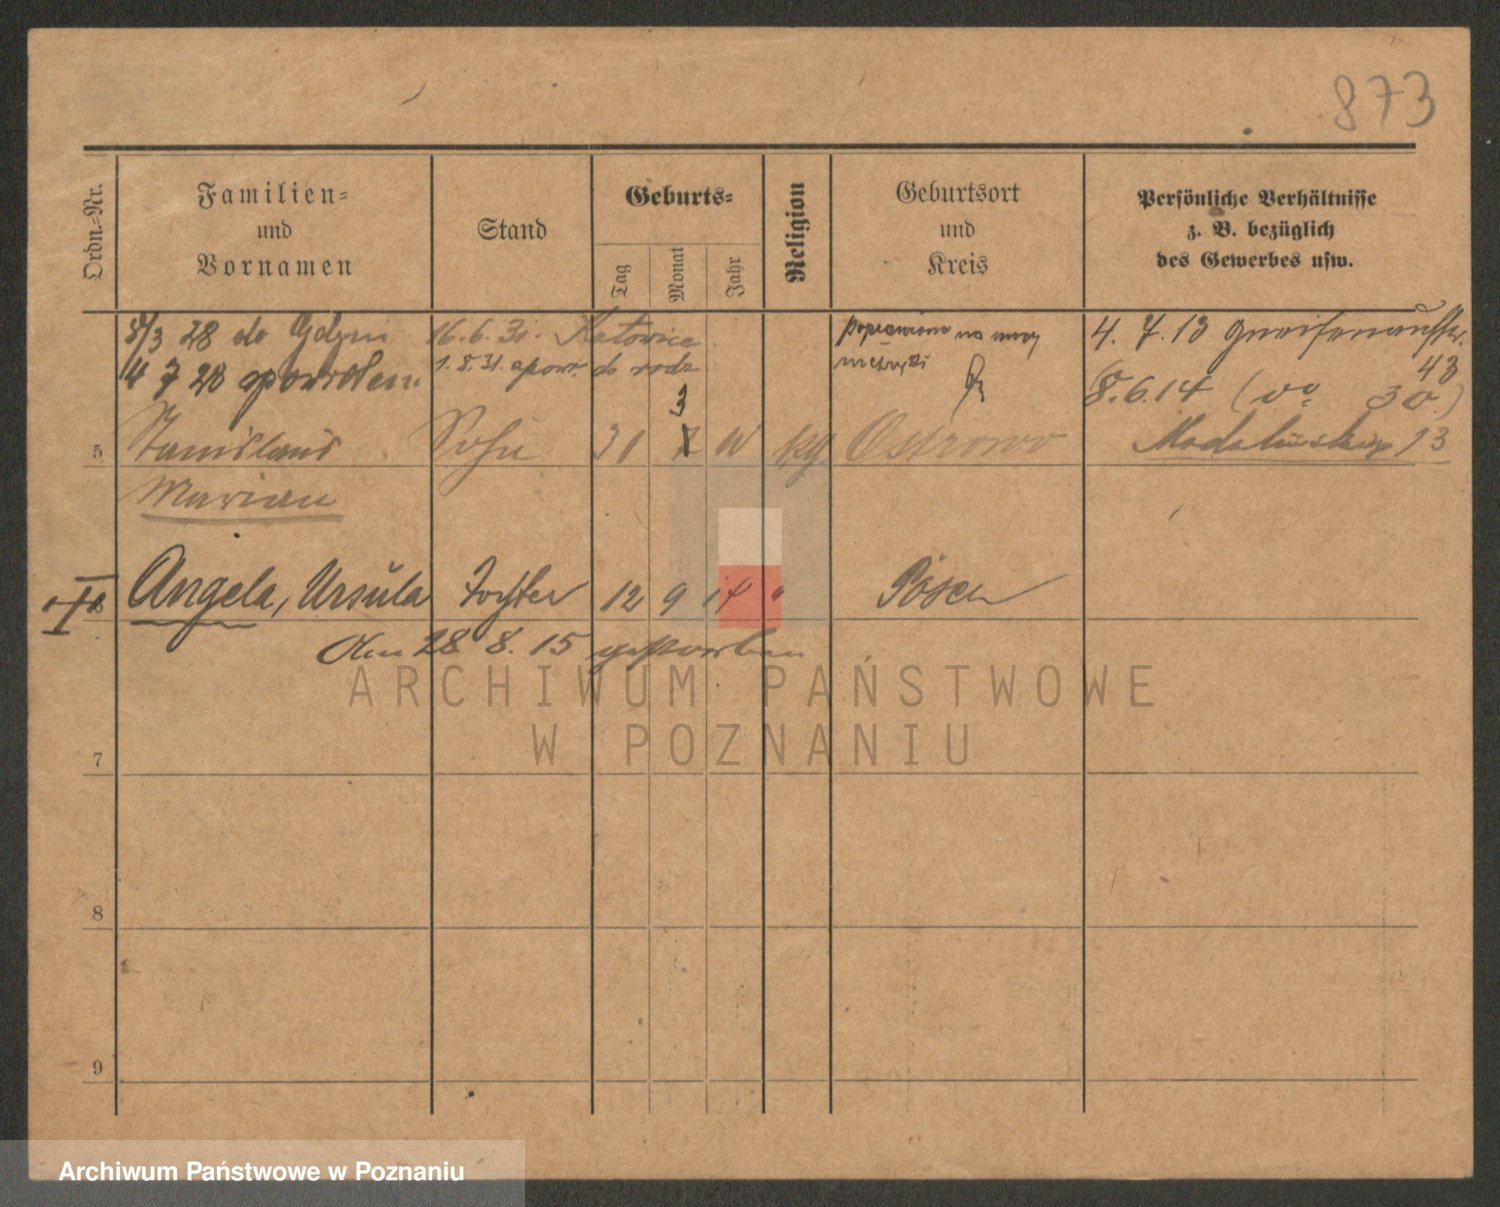 873
Ordn.-Nr.
Familien-
und
Vornamen
Stand
Geburts-
Tag
Monat
Jahr
Religion
Geburtsort
und
Kreis
Persönliche Verhältnisse
z. B. bezüglich
des Gewerbes usw.
8/3 28 do Gdyni 16.6.31. Katowice
4 7 28 z powrotem 1.8.31. z powr. do rodz
poprawiono na mocy
metryki
4. 7. 13 Gneisenaustr.
43
8. 6. 14 ( 30 )
3
5 Stanislaus Sohn 31 8 kg Ostrowo 13
Marian
6 Angela, Ursula Tochter 12 9 14 " Posen
Am 28. 8. 15 gestorben
7
8
9
ARCHIWUM PAŃSTWOWE
W POZNANIU
Archiwum Państwowe w Poznaniu